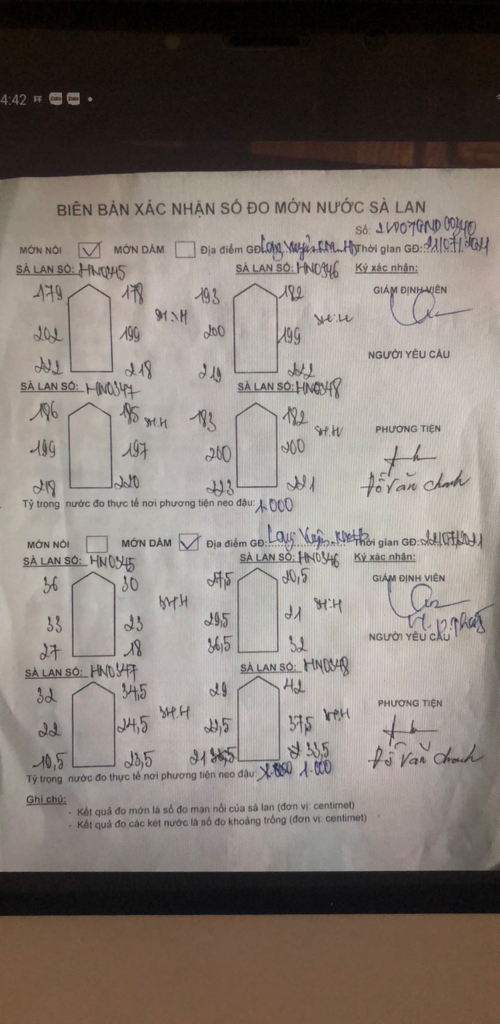 4:42
BIÊN BẢN XÁC NHẬN SỐ ĐO MỚN NƯỚC SÀ LAN
Số:
MỚN NỔI MỚN DẦM Địa điểm GĐ: Long Xuyên Thời gian GĐ: 21/07/2021
SÀ LAN SỐ: HN0345 SÀ LAN SỐ: HN0346 Ký xác nhận:
179 178 193 182 GIÁM ĐỊNH VIÊN
202 199 200 199
222 218 219 222 NGƯỜI YÊU CẦU
SÀ LAN SỐ: HN0347 SÀ LAN SỐ: HN0348
186 185 183 182 PHƯƠNG TIỆN
199 197 200 200
218 220 223 221 Đỗ Văn Chanh
Tỷ trọng nước đo thực tế nơi phương tiện neo đậu: 1.000
MỚN NỔI MỚN DẦM Địa điểm GĐ: Long Xuyên Thời gian GĐ: 21/07/2021
SÀ LAN SỐ: HN0345 SÀ LAN SỐ: HN0346 Ký xác nhận:
36 30 27,5 20,5 GIÁM ĐỊNH VIÊN
33 23 29,5 21
27 18 36,5 32 NGƯỜI YÊU CẦU
SÀ LAN SỐ: HN0347 SÀ LAN SỐ: HN0348
32 34,5 29 42 PHƯƠNG TIỆN
22 24,5 23,5 37,5
10,5 23,5 21 33,5 Đỗ Văn Chanh
Tỷ trọng nước đo thực tế nơi phương tiện neo đậu: 1.000
Ghi chú:
- Kết quả đo mớn là số đo mạn nổi của sà lan (đơn vị: centimet)
- Kết quả đo các két nước là số đo khoảng trống (đơn vị: centimet)